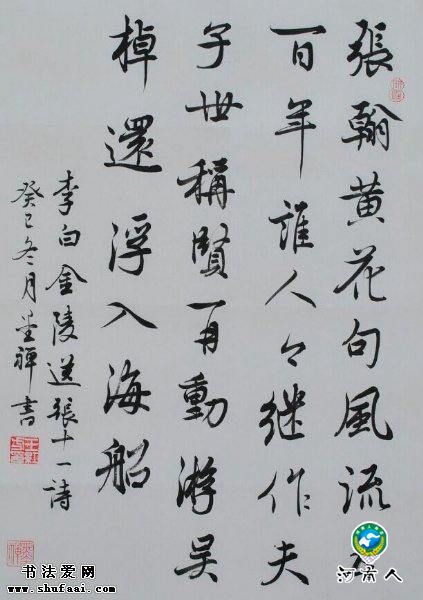 張翰黄花句風流
百年誰人今继作夫
子世稱賢再動游吴
棹還浮入海船
李白金陵送張十一詩
癸巳冬月禪書
河南人
书法爱网
www.shufaai.com